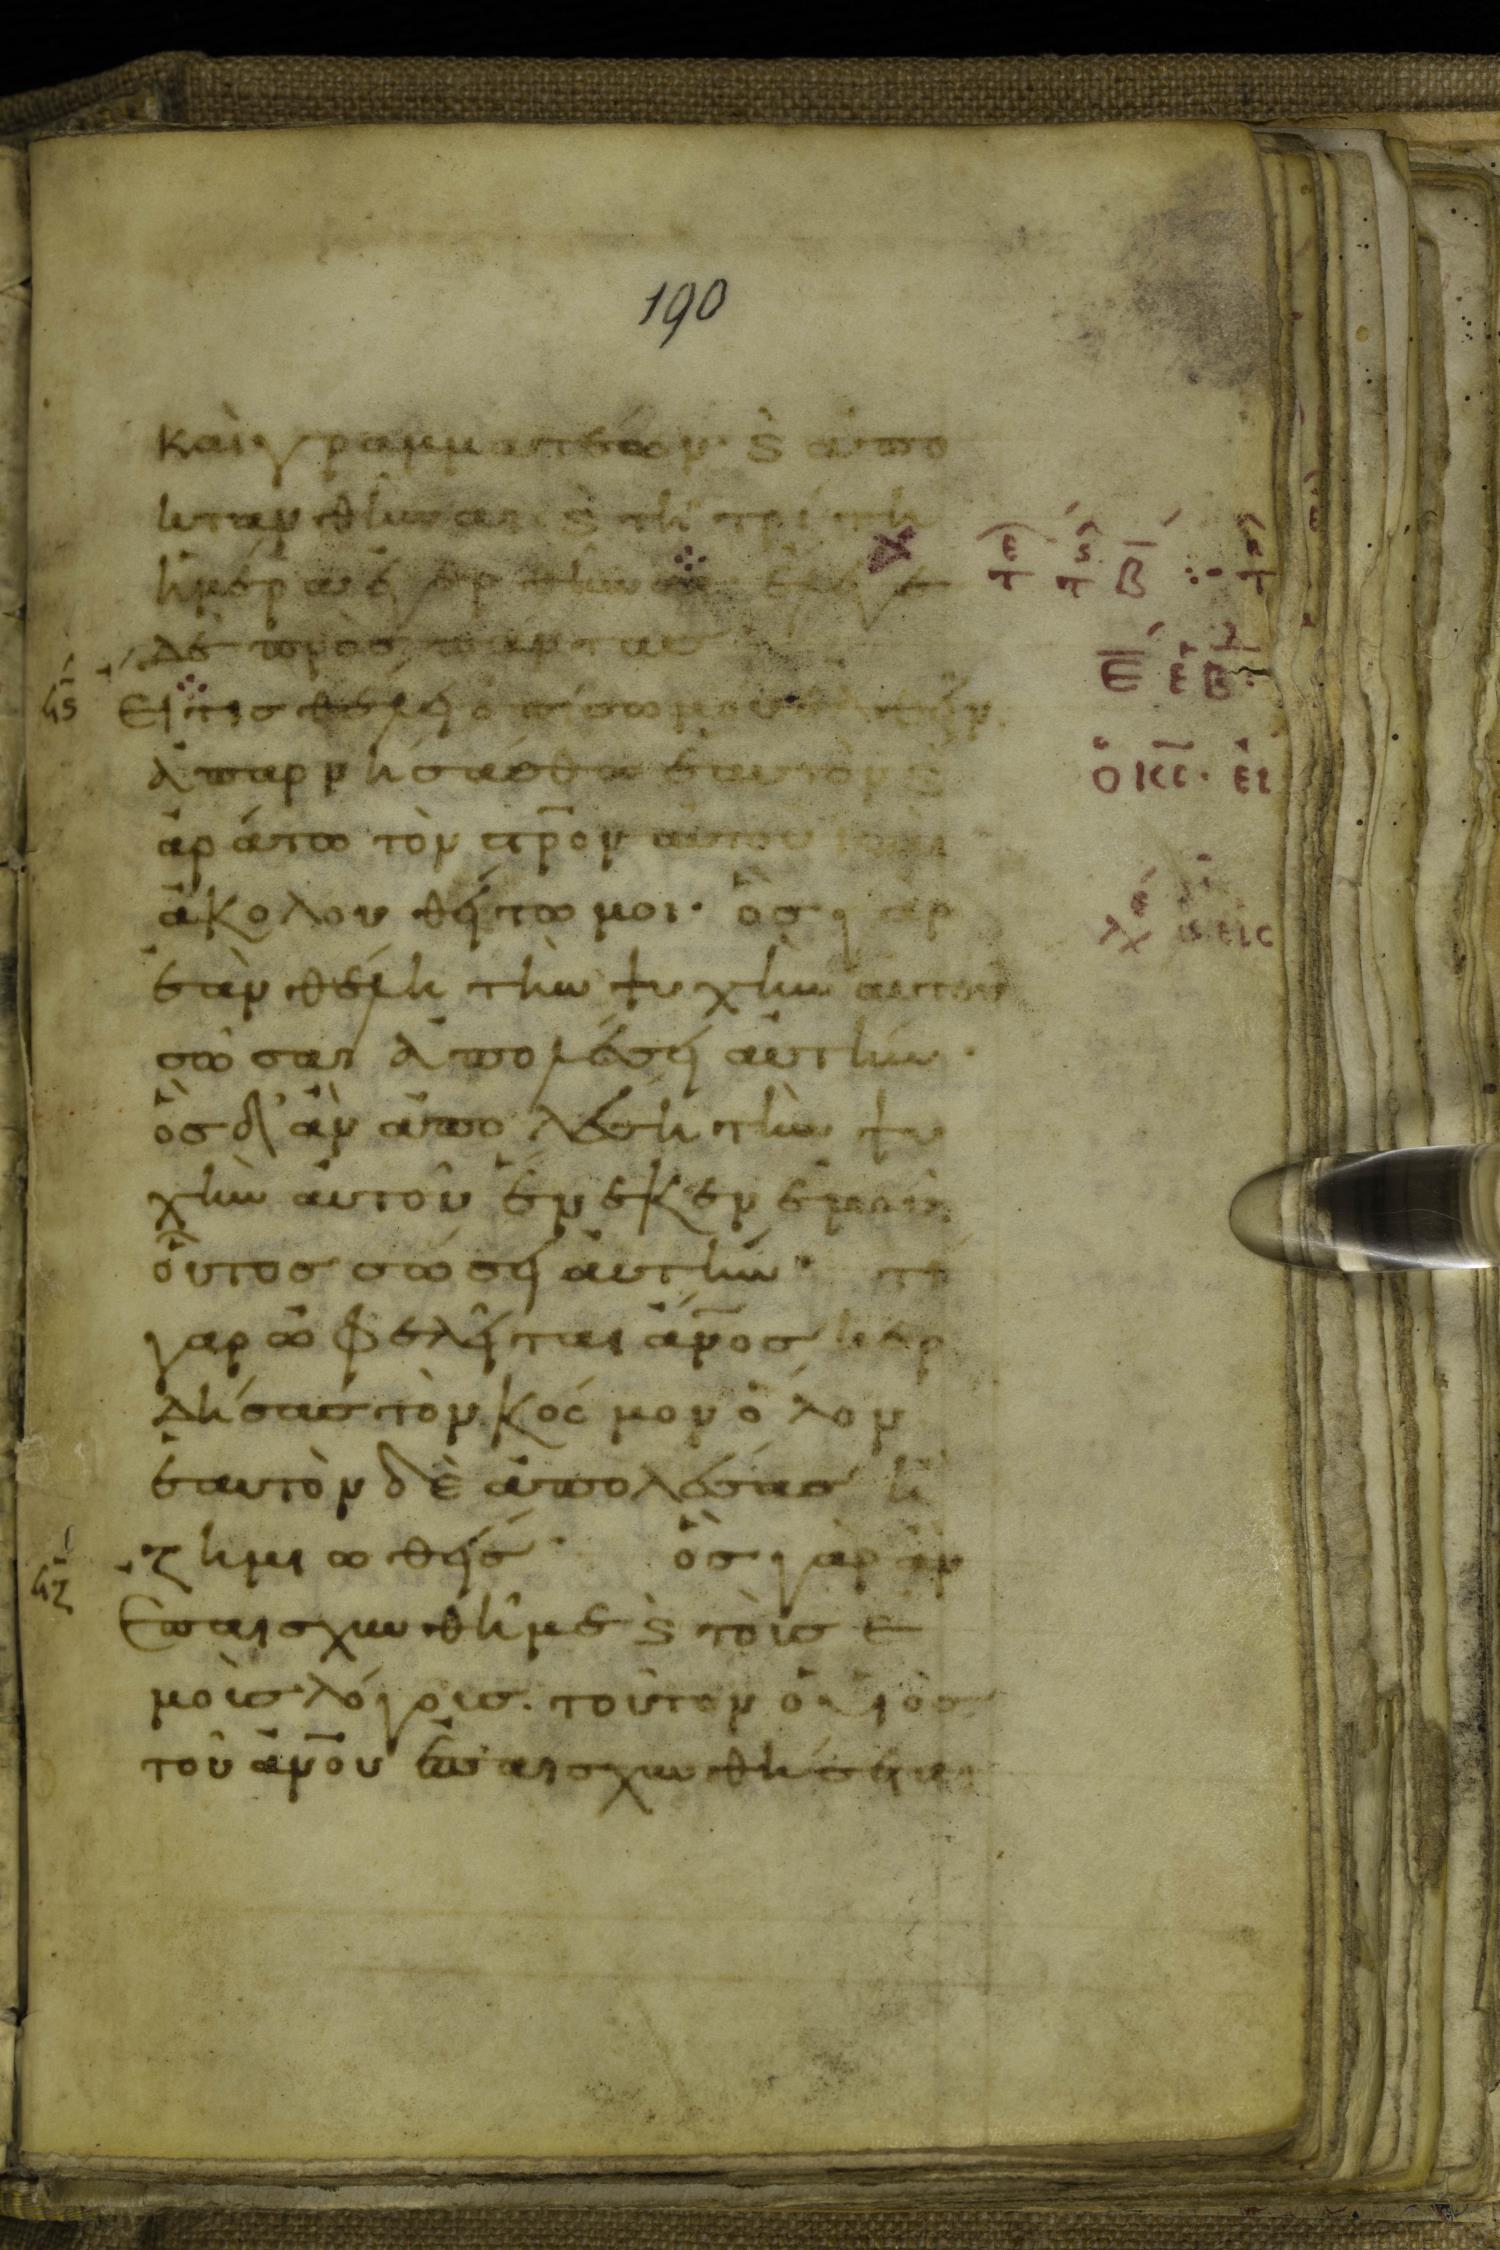 190
καὶ γραμματέων· ϗ ἀπο
κτανθῆναι ϗ τῆ τρίτη
ἡμέρα ἐγερθῆναι· ἔλεγε
δὲ πρὸς πάντας
Εἴ τις θέλει ὀπίσω μου ἐλθεῖν
ἀπαρνησάσθω ἑαυτὸν ϗ
ἀράτω τὸν σ̅ρ̅ο̅ν αὐτοῦ καὶ
ἀκολουθείτω μοι· ὃς γὰρ
ἐὰν θέλη τὴν ψυχὴν αὐτοῦ
σῶσαι ἀπολέσει αὐτήν·
ὃς δ' ἂν ἀπολέση τὴν ψυ
χὴν αὐτοῦ ἕνεκεν ἐμοῦ
οὗτος σώσει αὐτήν· τί
γαρ ὠφελεῖται ἄν̅ο̅ς κερ
δήσας τὸν κόσμον ὅλον
ἑαυτὸν δὲ ἀπολέσας ἢ
ζημιωθείς· ὃς γὰρ ἂν
Ἐπαισχυνθῆ με ϗ τοὺς ἐ
μοὺς λόγους. τοῦτον ὁ υἱὸς
τοῦ ἀν̅ο̅υ ἐπαισχυνθήσεται
Ὁ κ̅ς̅· εἰ